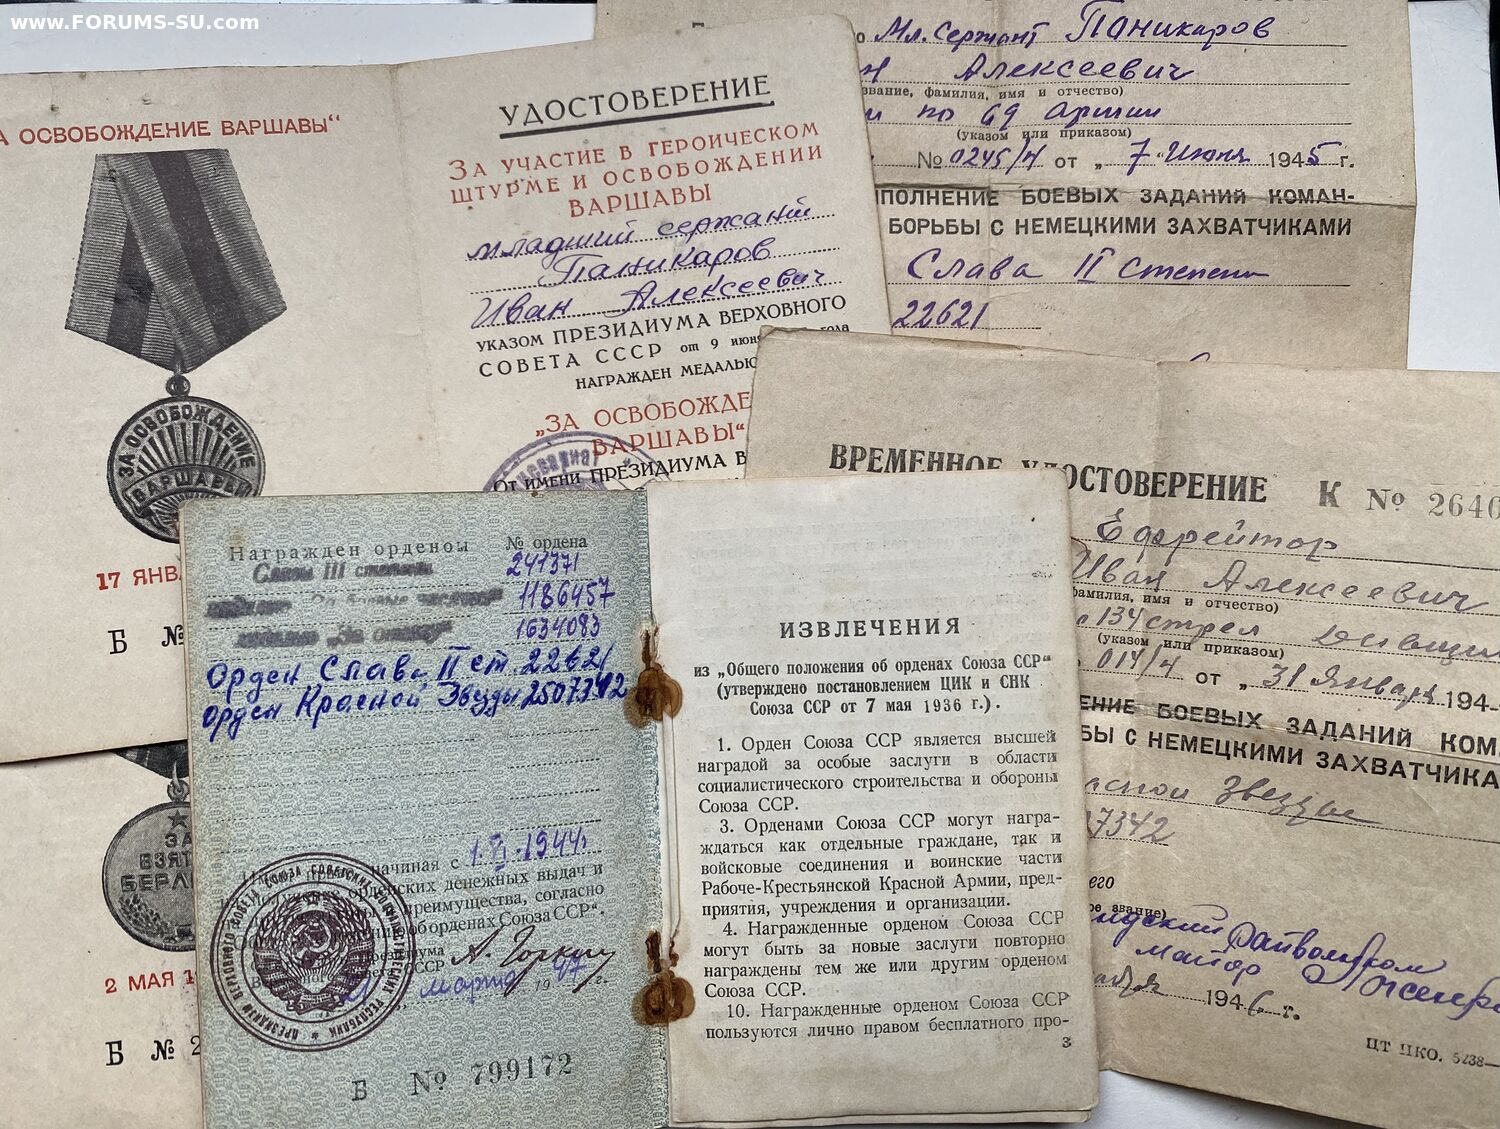 www.FORUMS-SU.com
А ОСВОБОЖДЕНИЕ ВАРШАВЫ“
ЗА ОСВОБОЖДЕНИЕ
ВАРШАВЫ
17 ЯНВ
Б №
УДОСТОВЕРЕНИЕ
ЗА УЧАСТИЕ В ГЕРОИЧЕСКОМ
ШТУРМЕ И ОСВОБОЖДЕНИИ
ВАРШАВЫ
младший сержант
Паникаров
Иван Алексеевич
УКАЗОМ ПРЕЗИДИУМА ВЕРХОВНОГО
СОВЕТА СССР от 9 июн года
НАГРАЖДЕН МЕДАЛЬЮ
„ЗА ОСВОБОЖДЕ
ВАРШАВЫ“
ОТ ИМЕНИ ПРЕЗИДИУМА В
Мл. Сержант Паникаров
Алексеевич
звание, фамилия, имя и отчество)
по 69 армии
(указом или приказом)
№ 0245/н от „7“ Июня 1945 г.
ПОЛНЕНИЕ БОЕВЫХ ЗАДАНИЙ КОМАН-
БОРЬБЫ С НЕМЕЦКИМИ ЗАХВАТЧИКАМИ
Слава II степени
22621
ВРЕМЕННОЕ УДОСТОВЕРЕНИЕ К № 2640
Ефрейтор
Иван Алексеевич
фамилия, имя и отчество)
134 стрел дивизии
(указом или приказом)
014/н от „31 Января 194
ЕНИЕ БОЕВЫХ ЗАДАНИЙ КОМ
БЫ С НЕМЕЦКИМИ ЗАХВАТЧИКА
сной Звезды
07342
его
ое звание)
райвоенком
майор
1946 г.
ЦТ НКО. 5238—
ЗА
ВЗЯТИЕ
БЕРЛ
2 МАЯ 1
Б № 2
Награжден орденом № ордена
Славы III степени 241371
1186457
медалью „За отвагу“ 1634083
Орден Слава II ст. 22621
Орден Красной Звезды 2507342
начиная с 1.VI.1944г
орденских денежных выдач и
преимущества, согласно
об орденах Союза ССР“.
А. Горкин
марта 1947 г.
Б № 799172
ИЗВЛЕЧЕНИЯ
из „Общего положения об орденах Союза ССР“
(утверждено постановлением ЦИК и СНК
Союза ССР от 7 мая 1936 г.).
1. Орден Союза ССР является высшей
наградой за особые заслуги в области
социалистического строительства и обороны
Союза ССР.
3. Орденами Союза ССР могут награ-
ждаться как отдельные граждане, так и
войсковые соединения и воинские части
Рабоче-Крестьянской Красной Армии, пред-
приятия, учреждения и организации.
4. Награжденные орденом Союза ССР
могут быть за новые заслуги повторно
награждены тем же или другим орденом
Союза ССР.
10. Награжденные орденом Союза ССР
пользуются лично правом бесплатного про-
3